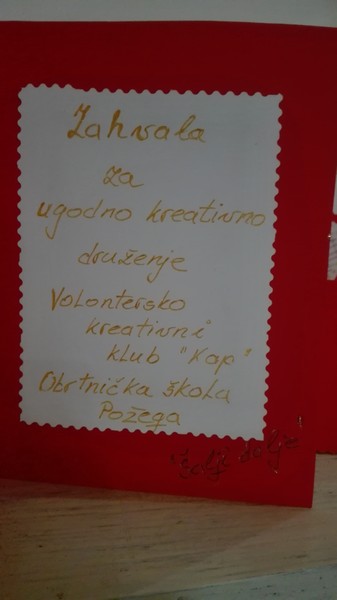 Zahvala
za
ugodno kreativno
druženje
Volontersko
kreativni
klub "Kap"
Obrtnička škola
Požega